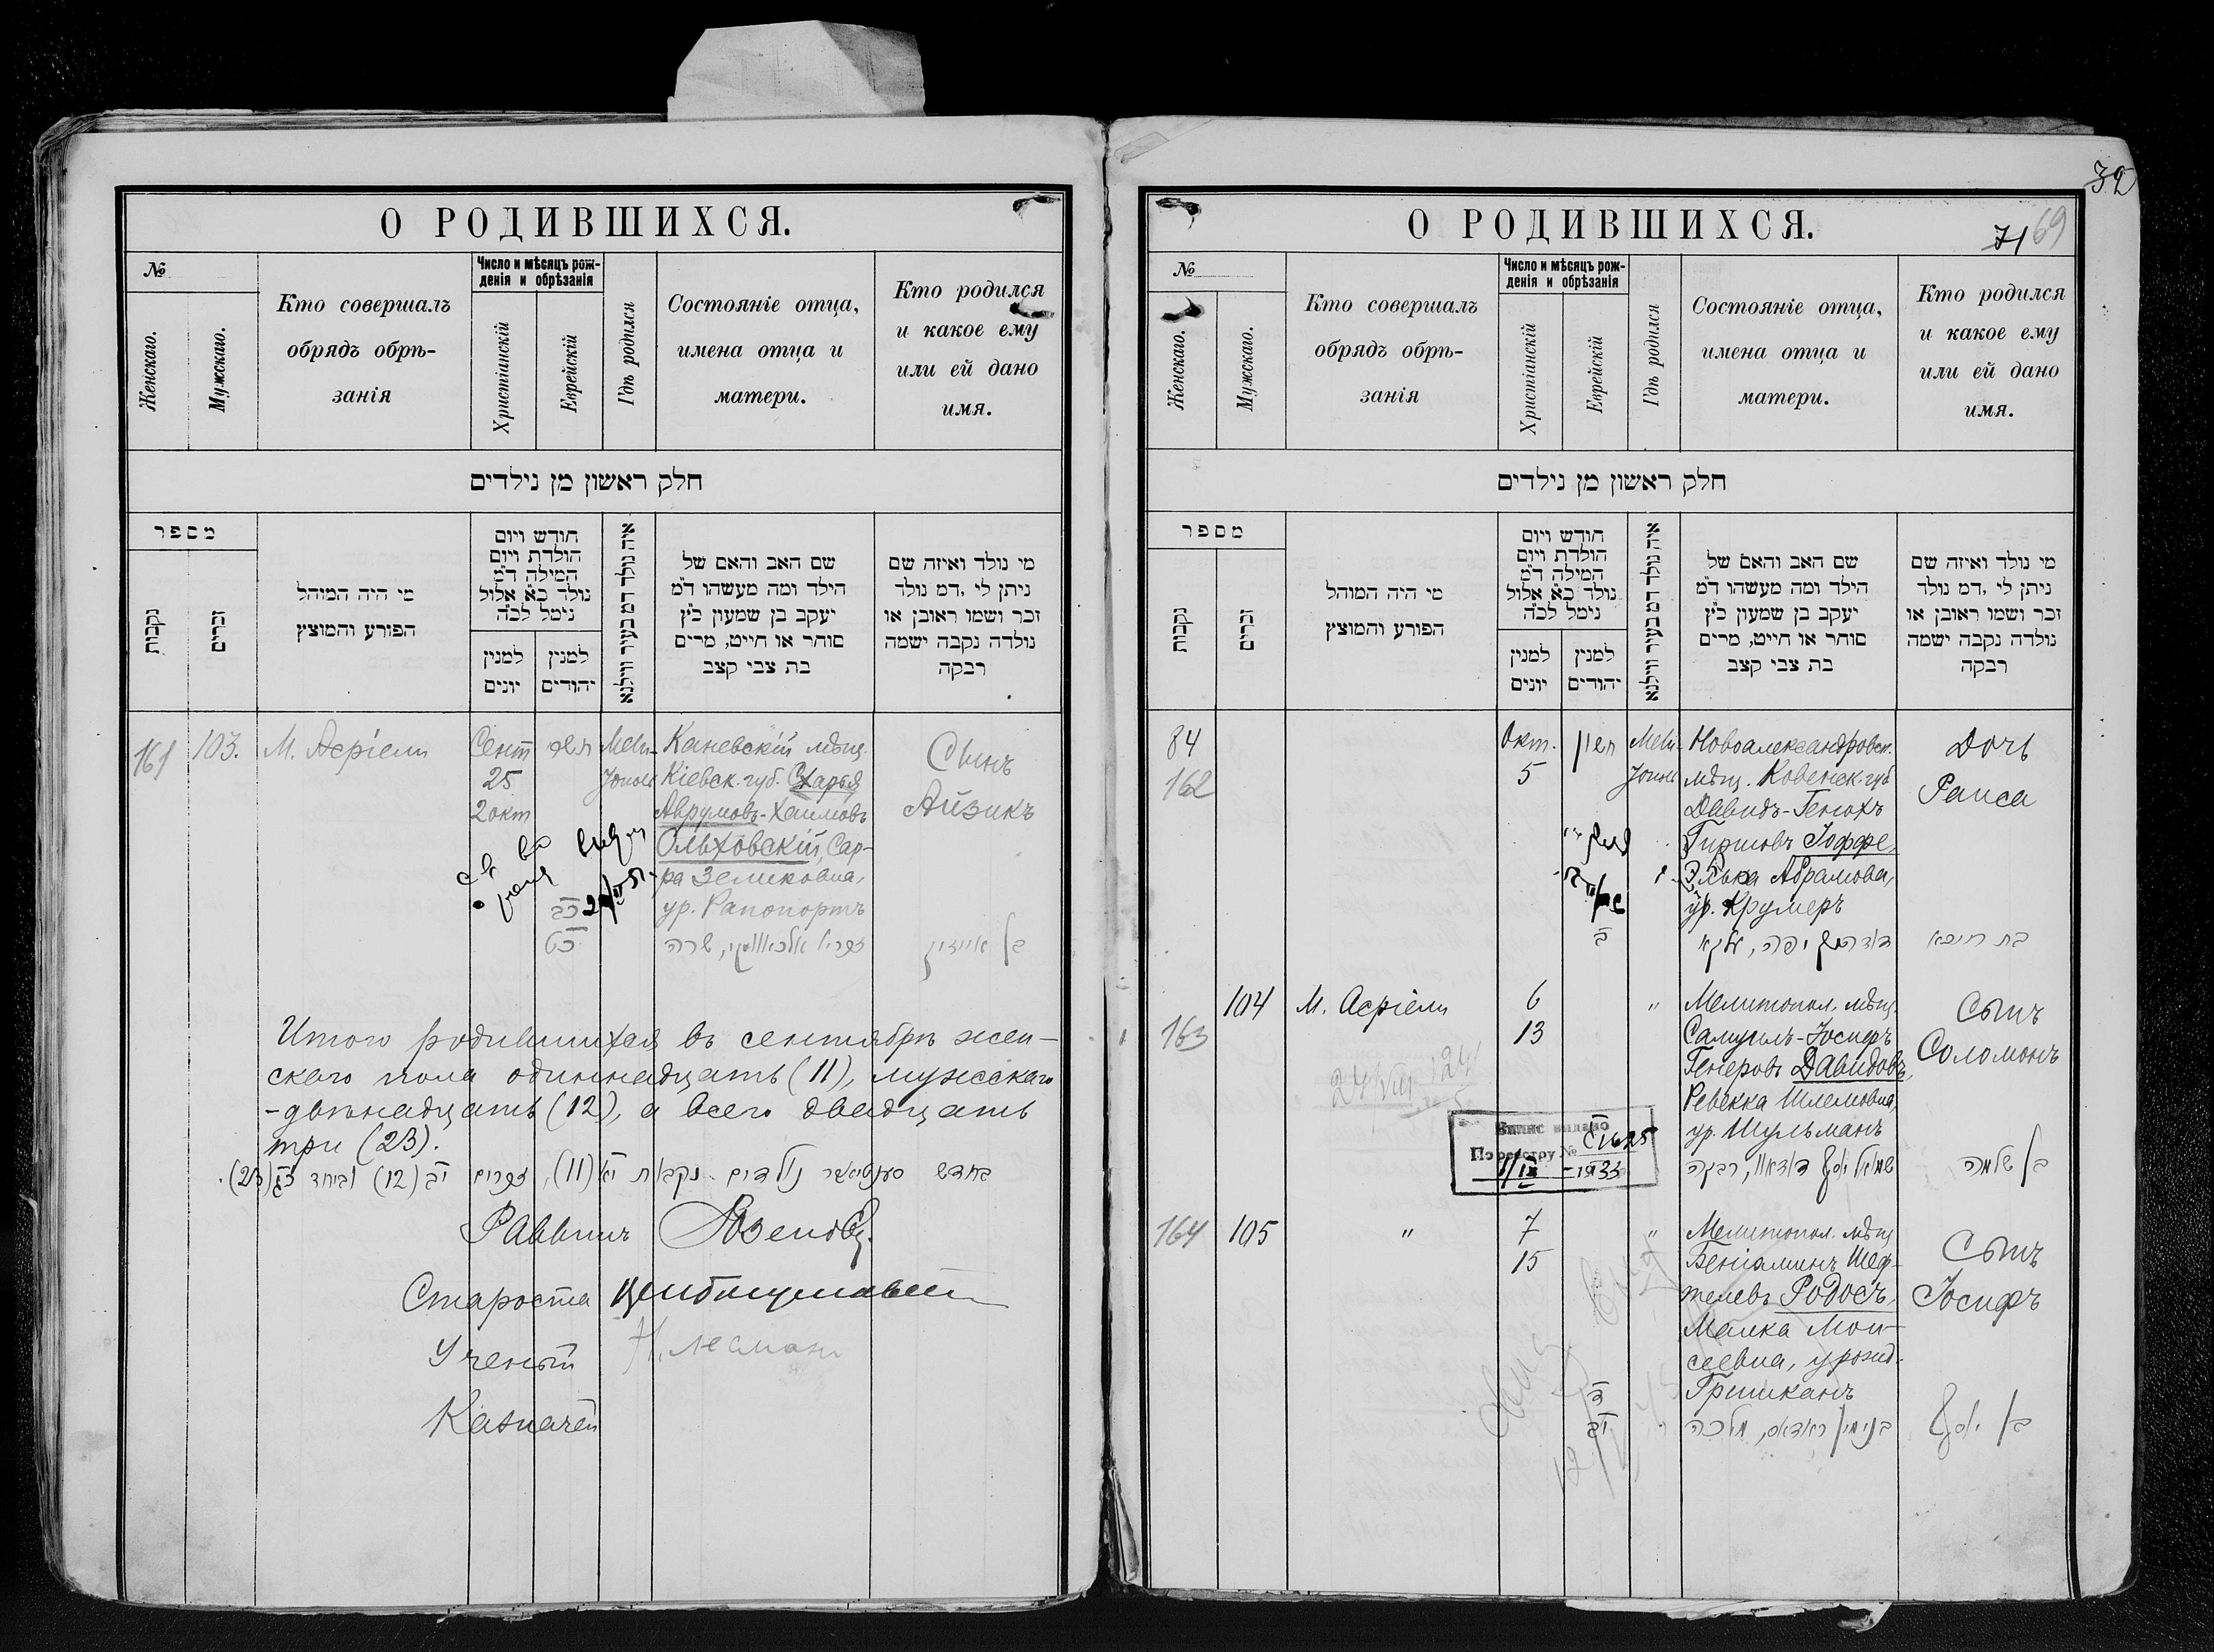 О РОДИВШИХСЯ.
№
Женскаго.
Мужскаго.
Кто совершалъ
обрядъ обрѣ-
занія
Число и мѣсяцъ рож-
денія и обрѣзанія
Христіанскій
Еврейскій
Гдѣ родился
Состояніе отца,
имена отца и
матери.
Кто родился
и какое ему
или ей дано
имя.
חלק ראשון מן נילדים
מספר
נקבות
זכרים
מי היה המוהל
הפורע והמוצץ
חודש ויום
הולדת ויום
המילה ד"מ
נולד כ"א אלול
נימל לכ"ה
למנין
יונים
למנין
יהודים
איה נולד דמ בעיר ווילנא
שם האב והאם של
הילד ומה מעשהו ד"מ
יעקב בן שמעון כ"ץ
סוחר או חייט, מרים
בת צבי קצב
מי נולד ואיזה שם
ניתן לי ,דמ נולד
זכר ושמו ראובן או
נולדה נקבה ישמה
רבקה
161
103.
М. Асріели
Сент
25
2 окт
תשרי
כב
כט
Мели-
тополь
Каневскій мѣщ.
Кіевск. губ.
Аврумовъ-Хаимовъ
Ольховскій, Сар-
ра Зеликовна,
ур. Рапопортъ
Сынъ
Айзикъ
בן אייזיק
Итого родившихся въ сентябрѣ жен-
скаго пола одиннадцать (11), мужскаго
-двѣнадцать (12), а всего двадцать
три (23).
בחדש סענטיאבר נולדים נקבות יא (11), זכרים יב (12) וביחד כג (23).
Раввинъ
Староста
Ученый
Казначей
32
О РОДИВШИХСЯ.
71 69
№
Женскаго.
Мужскаго.
Кто совершалъ
обрядъ обрѣ-
занія
Число и мѣсяцъ рож-
денія и обрѣзанія
Христіанскій
Еврейскій
Гдѣ родился
Состояніе отца,
имена отца и
матери.
Кто родился
и какое ему
или ей дано
имя.
חלק ראשון מן נילדים
מספר
נקבות
זכרים
מי היה המוהל
הפורע והמוצץ
חודש ויום
הולדת ויום
המילה ד"מ
נולד כ"א אלול
נימל לכ"ה
למנין
יונים
למנין
יהודים
איה נולד דמ בעיר ווילנא
שם האב והאם של
הילד ומה מעשהו ד"מ
יעקב בן שמעון כ"ץ
סוחר או חייט, מרים
בת צבי קצב
מי נולד ואיזה שם
ניתן לי ,דמ נולד
זכר ושמו ראובן או
נולדה נקבה ישמה
רבקה
84
162
Окт.
5
חשון
ב
Мели-
тополь
Новоалександровск.
мѣщ. Ковенск. губ
Давидъ-Генохъ
Гиршовъ Іоффе,
Элька Абрамова,
ур. Крумеръ
Дочь
Раиса
163
104
М. Асріели
6
13
"
Мелитопол. мѣщ.
Самуилъ-Іосифъ
Генеровъ Давидовъ,
Ревекка Шлемовна,
ур. Шульманъ
שמואל יוסף דאווידאוו, רבקה
Сынъ
Соломонъ
בן שלמה
24/VIII
Випис видано
По реєстру № 1625
1/IX - 1933
164
105
"
7
15
יב
"
Мелитопол. мѣщ
Беніаминъ Шеф-
телевъ Родосъ,
Малка Мои-
сеевна, урожд.
Гришканъ
בנימין ראדאס, מלכה
Сынъ
Іосифъ
בן יוסף